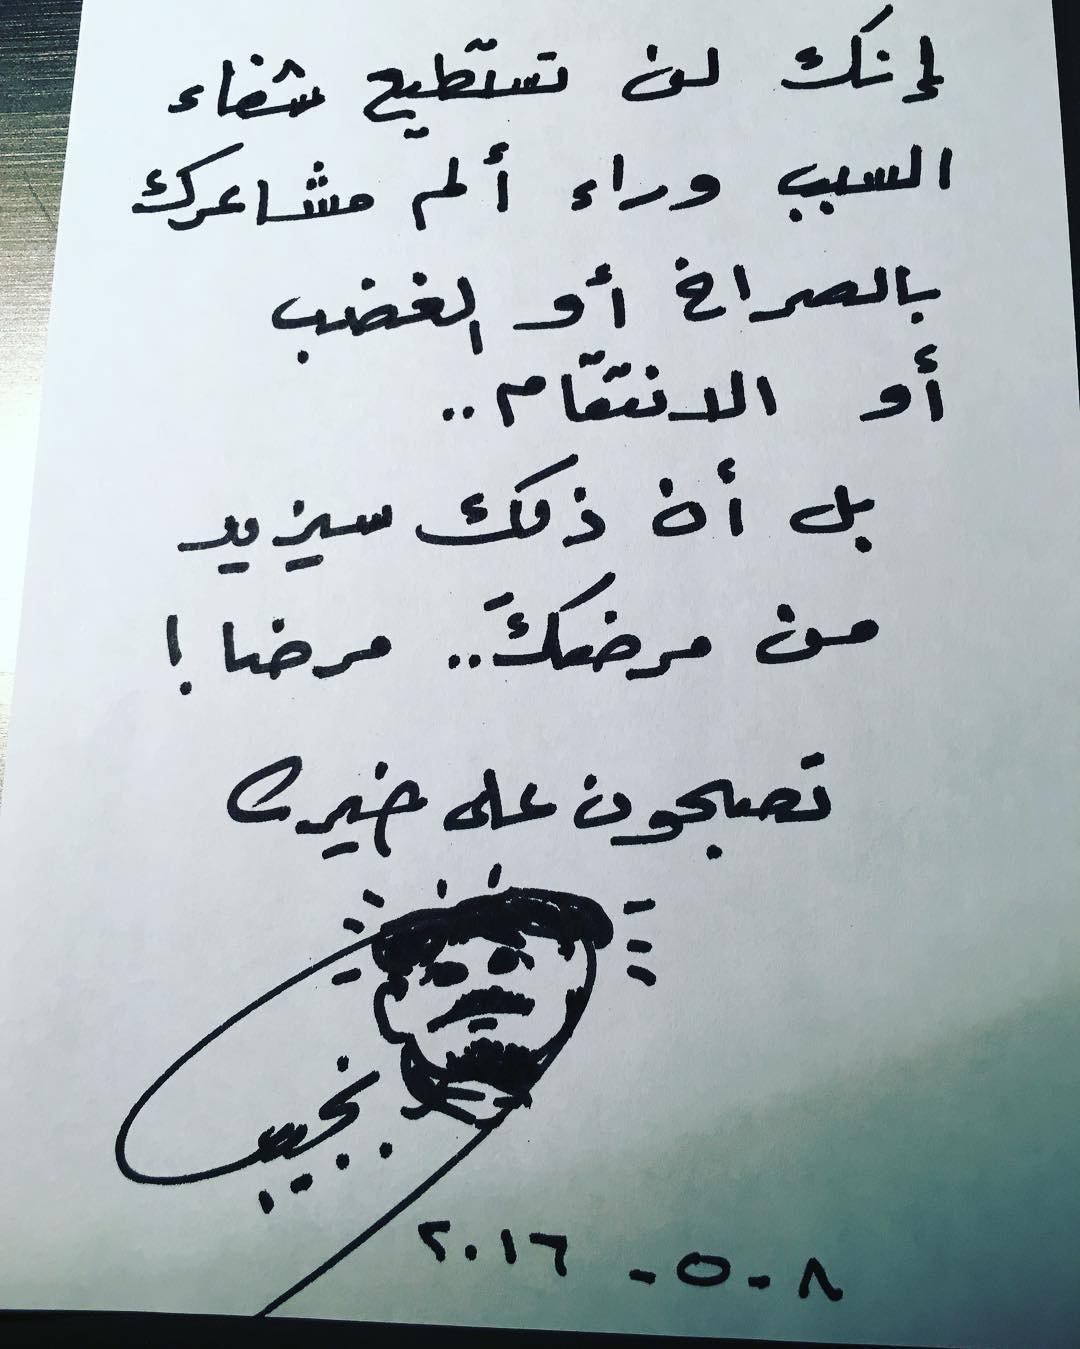 إنك لن تستطيع شفاء
السبب وراء ألم مشاعرك
بالصراخ أو الغضب
أو الانتقام..
بل أن ذلك سيزيد
من مرضكَ.. مرضا!
تصبحون على خير
نجيب
٨ - ٥ - ٢٠١٦